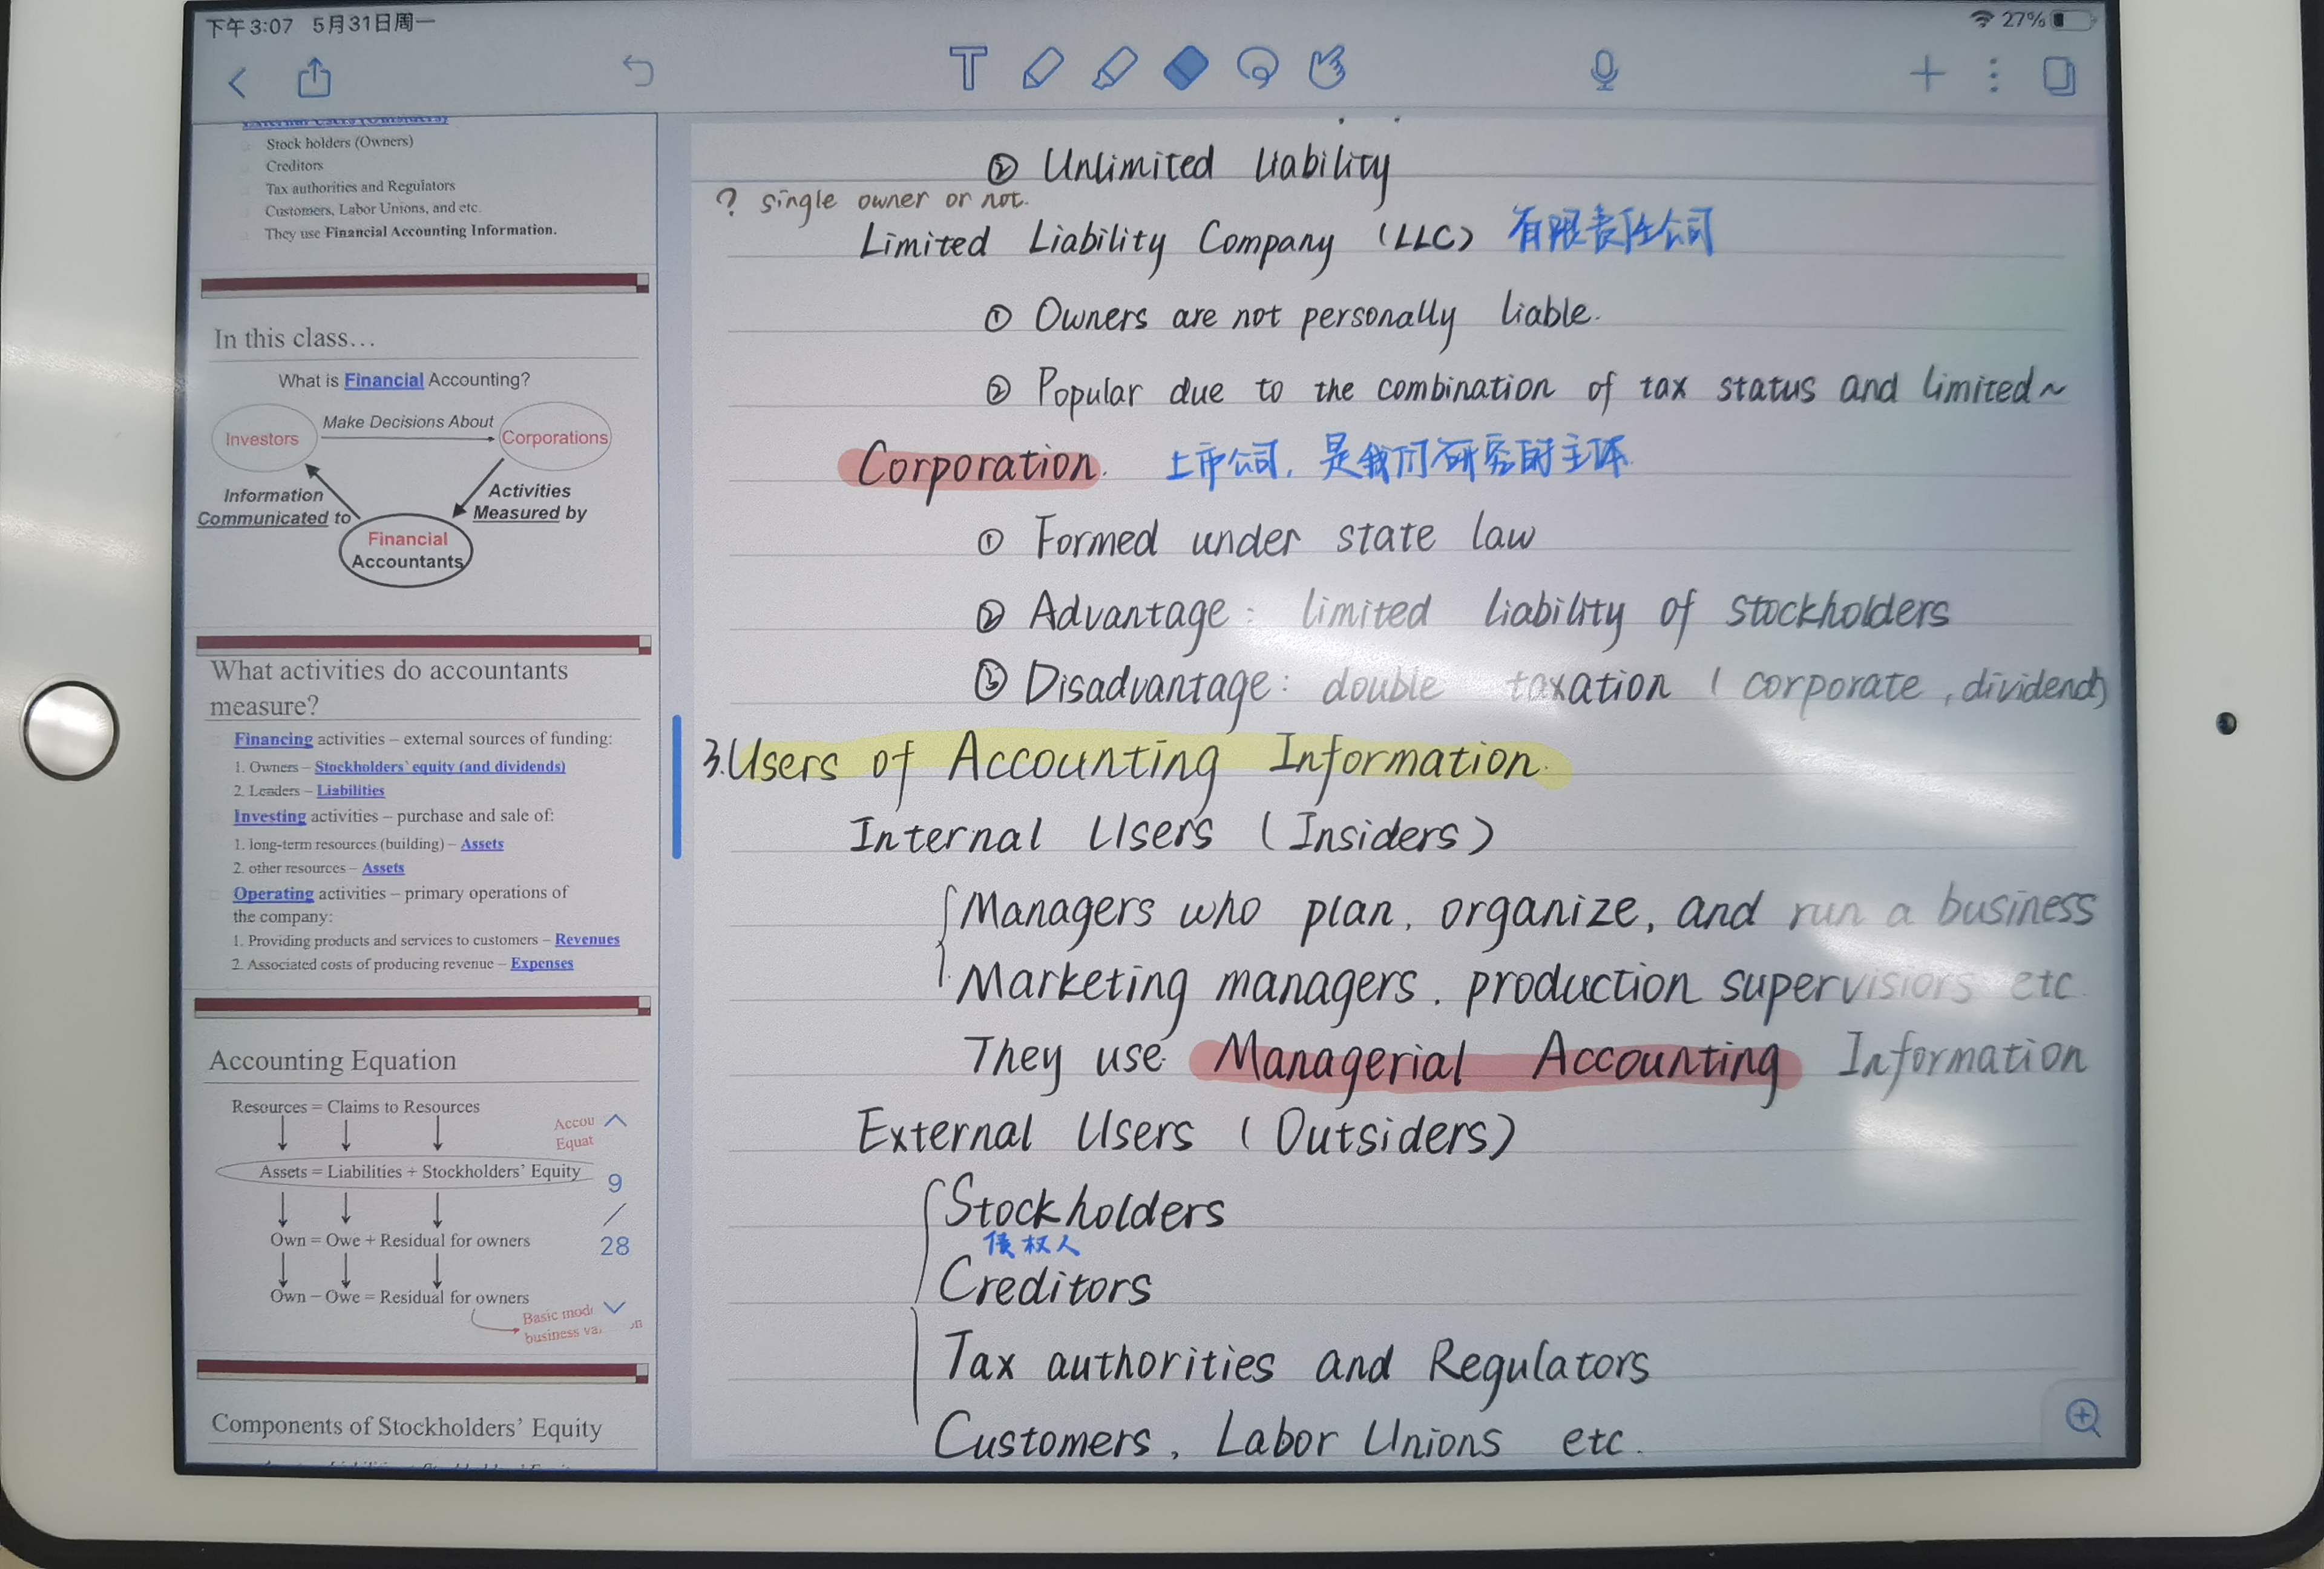 下午3:07 5月31日周一
27%
Stock holders (Owners)
Creditors
Tax authorities and Regulators
Customers, Labor Unions, and etc.
They use Financial Accounting Information.
In this class…
What is Financial Accounting?
Investors
Make Decisions About
Corporations
Information
Communicated to
Activities
Measured by
Financial
Accountants
What activities do accountants
measure?
Financing activities – external sources of funding:
1. Owners – Stockholders' equity (and dividends)
2. Leaders – Liabilities
Investing activities – purchase and sale of:
1. long-term resources (building) – Assets
2. other resources – Assets
Operating activities – primary operations of
the company:
1. Providing products and services to customers – Revenues
2. Associated costs of producing revenue – Expenses
Accounting Equation
Resources = Claims to Resources
Accou
Equat
Assets = Liabilities + Stockholders' Equity
9
/
28
Own = Owe + Residual for owners
Own – Owe = Residual for owners
Basic mod
business va
Components of Stockholders' Equity
② Unlimited Liability
? single owner or not.
Limited Liability Company (LLC) 有限责任公司
① Owners are not personally liable.
② Popular due to the combination of tax status and limited~
Corporation. 上市公司, 是我们研究的主体
① Formed under state law
② Advantage: limited liability of stockholders
③ Disadvantage: double taxation (corporate, dividend)
3. Users of Accounting Information.
Internal Users (Insiders)
Managers who plan, organize, and run a business
Marketing managers, production supervisiors etc.
They use Managerial Accounting Information
External Users (Outsiders)
Stockholders
债权人
Creditors
Tax authorities and Regulators
Customers, Labor Unions etc.